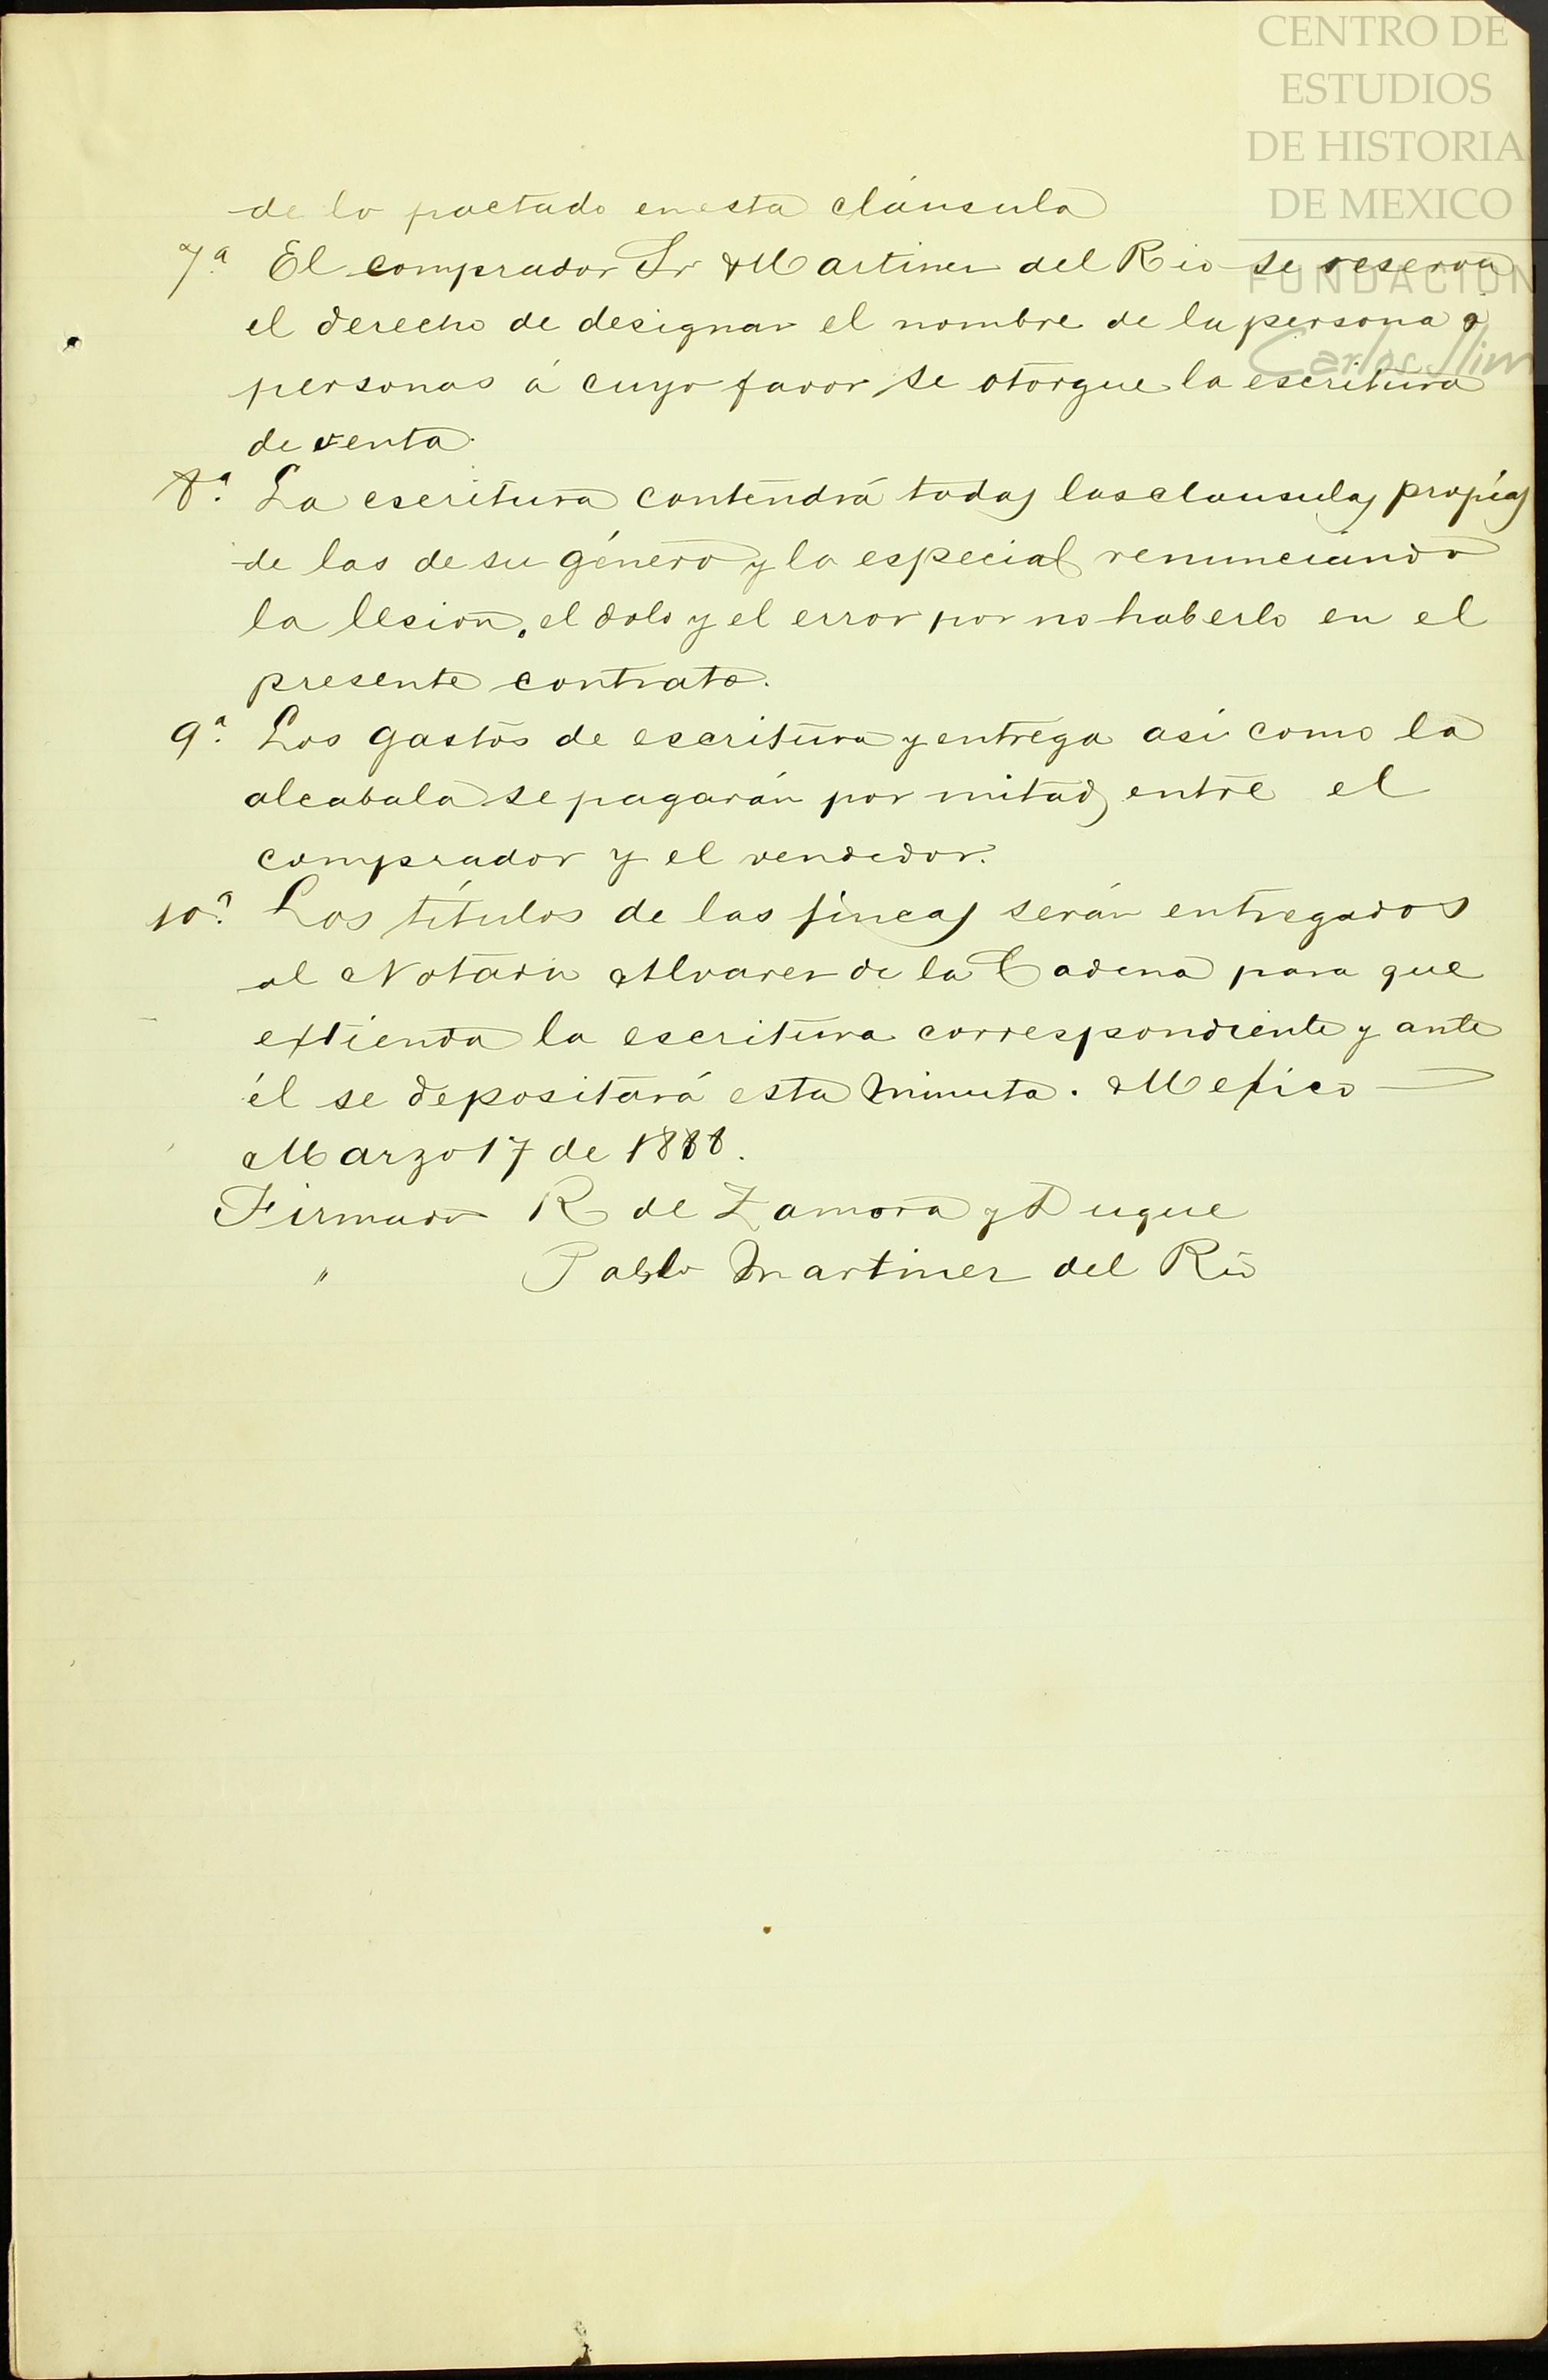 CENTRO DE
ESTUDIOS
DE HISTORIA
DE MEXICO
FUNDACION
Carlos Slim
de lo pactado en esta cláusula
7ª El comprador Sr Martinez del Rio se reserva
el derecho de designar el nombre de la persona ó
personas á cuyo favor se otorgue la escritura
de venta.
8ª La escritura contendrá todas las clausulas propias
de las de su género y la especial renunciando
la lesion, el dolo y el error por no haberlo en el
presente contrato.
9ª Los gastos de escritura y entrega asi como la
alcabala se pagarán por mitad entre el
comprador y el vendedor.
10ª Los títulos de las fincas serán entregados
al Notario Alvarez de la Cadena para que
extienda la escritura correspondiente y ante
él se depositará esta minuta. Mexico
Marzo 17 de 1888.
Firmado R de Zamora y Duque
" Pablo Martinez del Rio